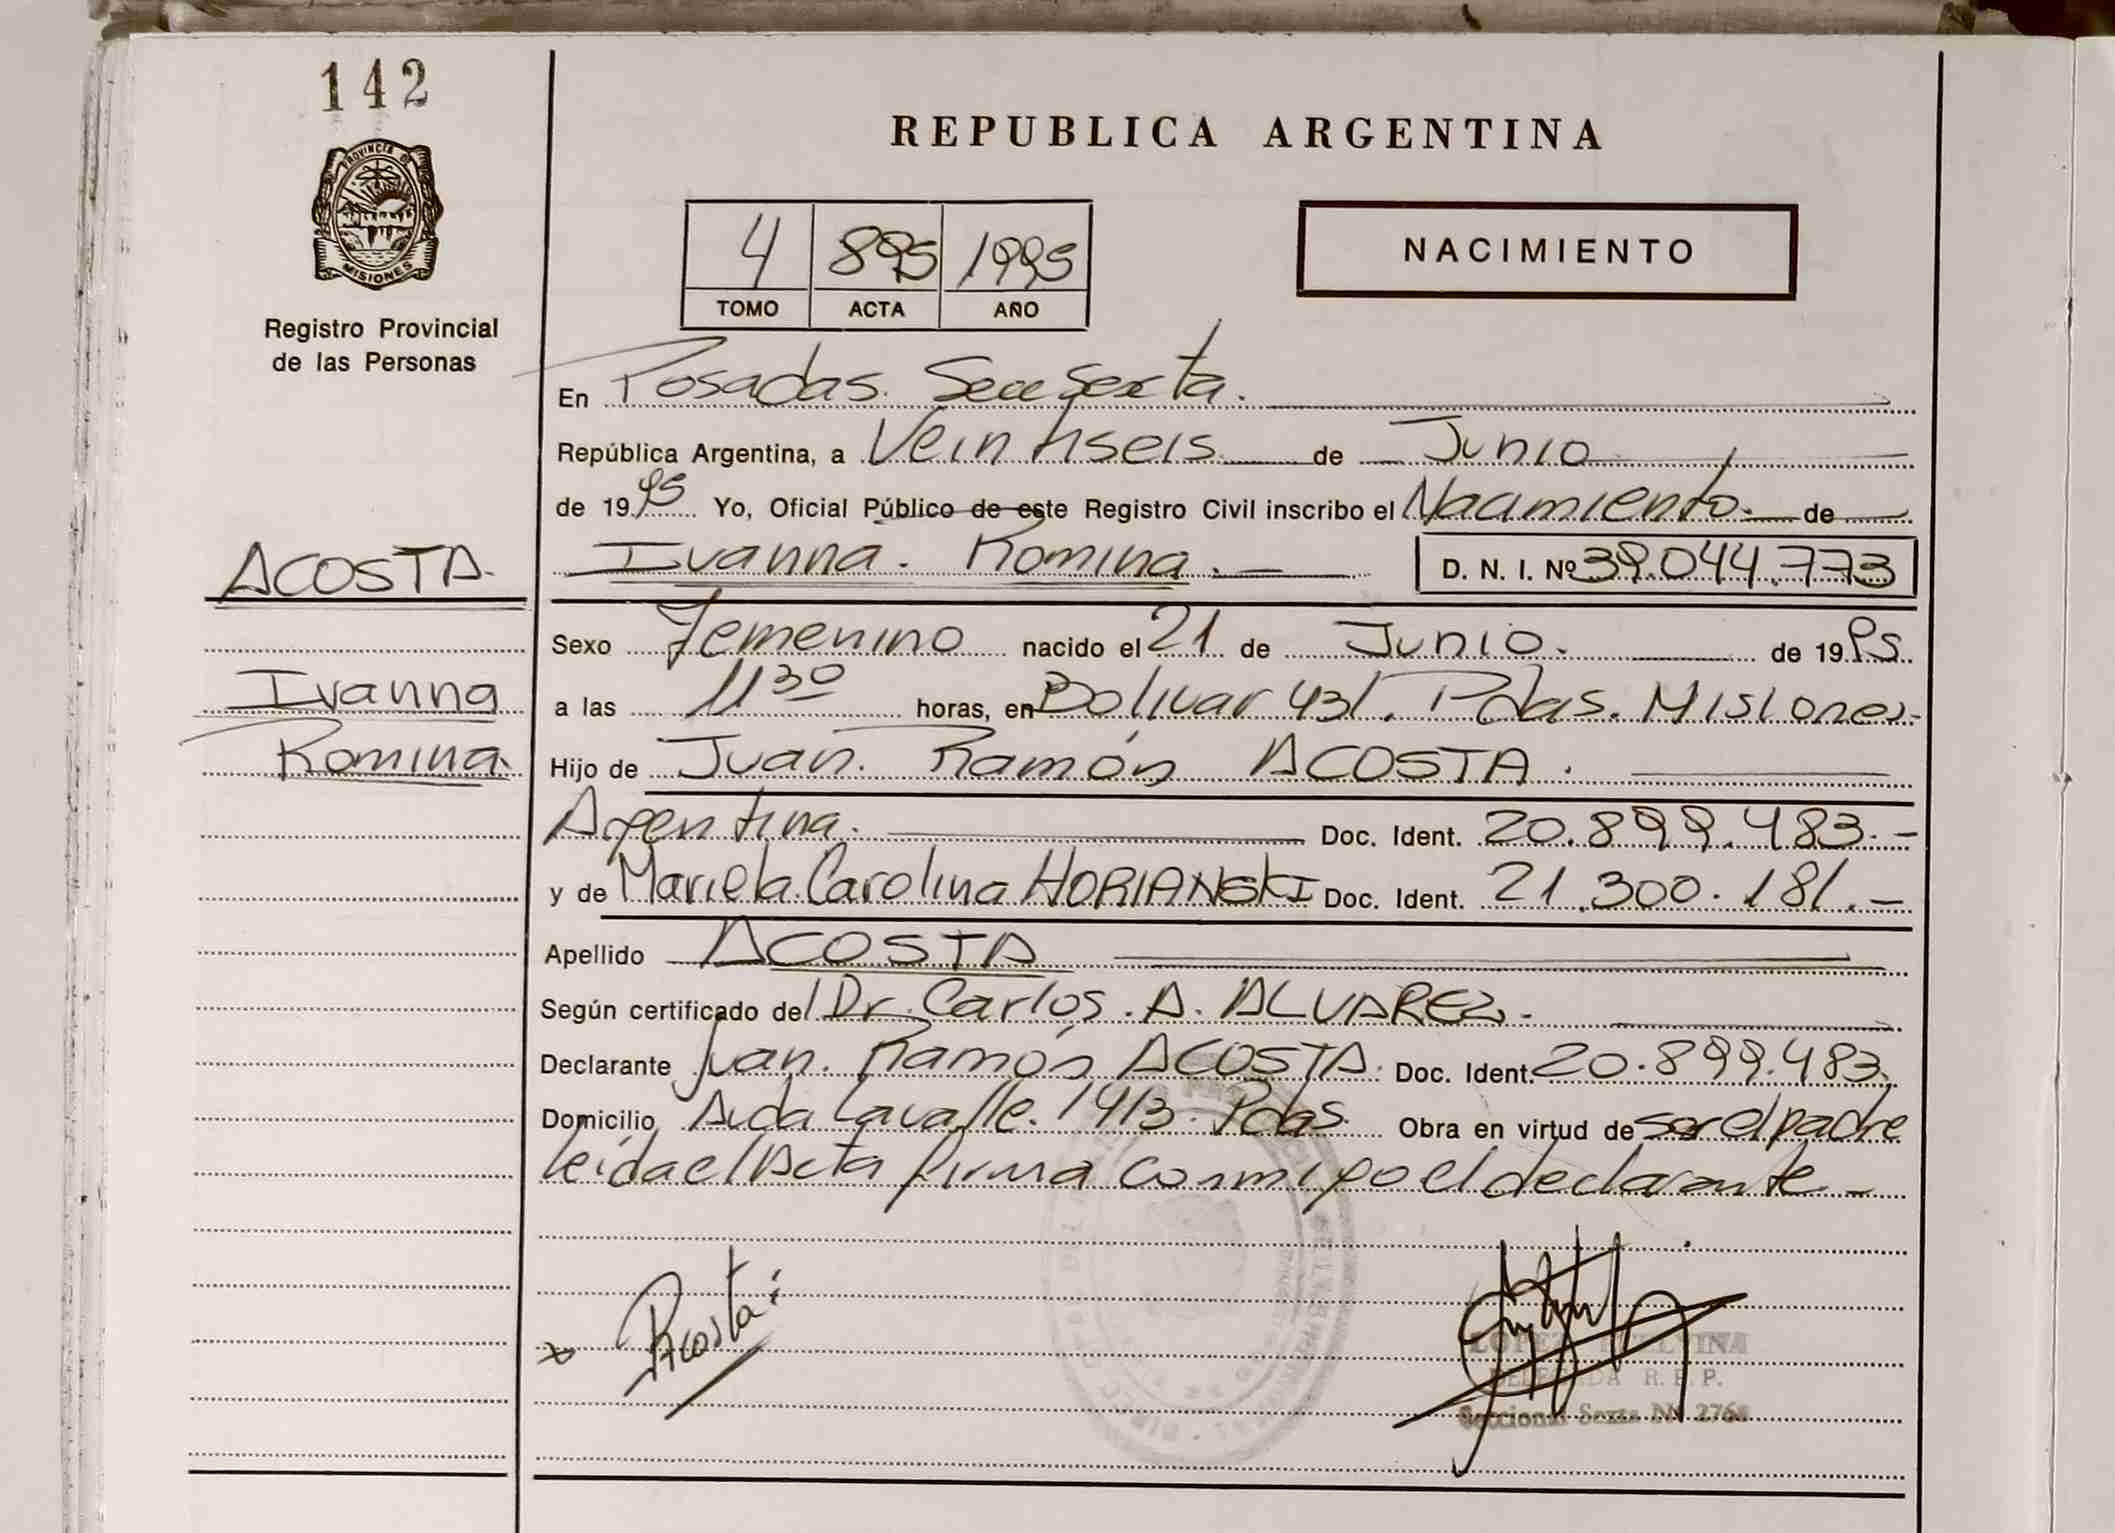 142
PROVINCIA DE
MISIONES
Registro Provincial
de las Personas
REPUBLICA ARGENTINA
4 895 1995
TOMO ACTA AÑO
NACIMIENTO
En Posadas. Secc Sexta.
República Argentina, a Veintiseis de Junio
de 1995 Yo, Oficial Público de este Registro Civil inscribo el Nacimiento. de
ACOSTA. Ivanna. Romina. D. N. I. Nº 39.044.773
Sexo Femenino nacido el 21 de Junio. de 1995.
Ivanna a las 11 30 horas, en Bolivar 431. Pdas. Misiones-
Romina. Hijo de Juan. Ramón ACOSTA.
Argentina. Doc. Ident. 20.899.483.-
y de Mariela. Carolina HORIANSKI Doc. Ident. 21.300.181.-
Apellido ACOSTA
Según certificado del Dr. Carlos. A. ALVAREZ.
Declarante Juan. Ramón ACOSTA. Doc. Ident. 20.899.483.
Domicilio Avda Lavalle. 1913. Pdas. Obra en virtud de ser el padre
leida el Acta firma conmigo el declarante.-
x Acosta
LOPEZ
DELEGADA R. E. P.
Seccional Sexta Nº 2764